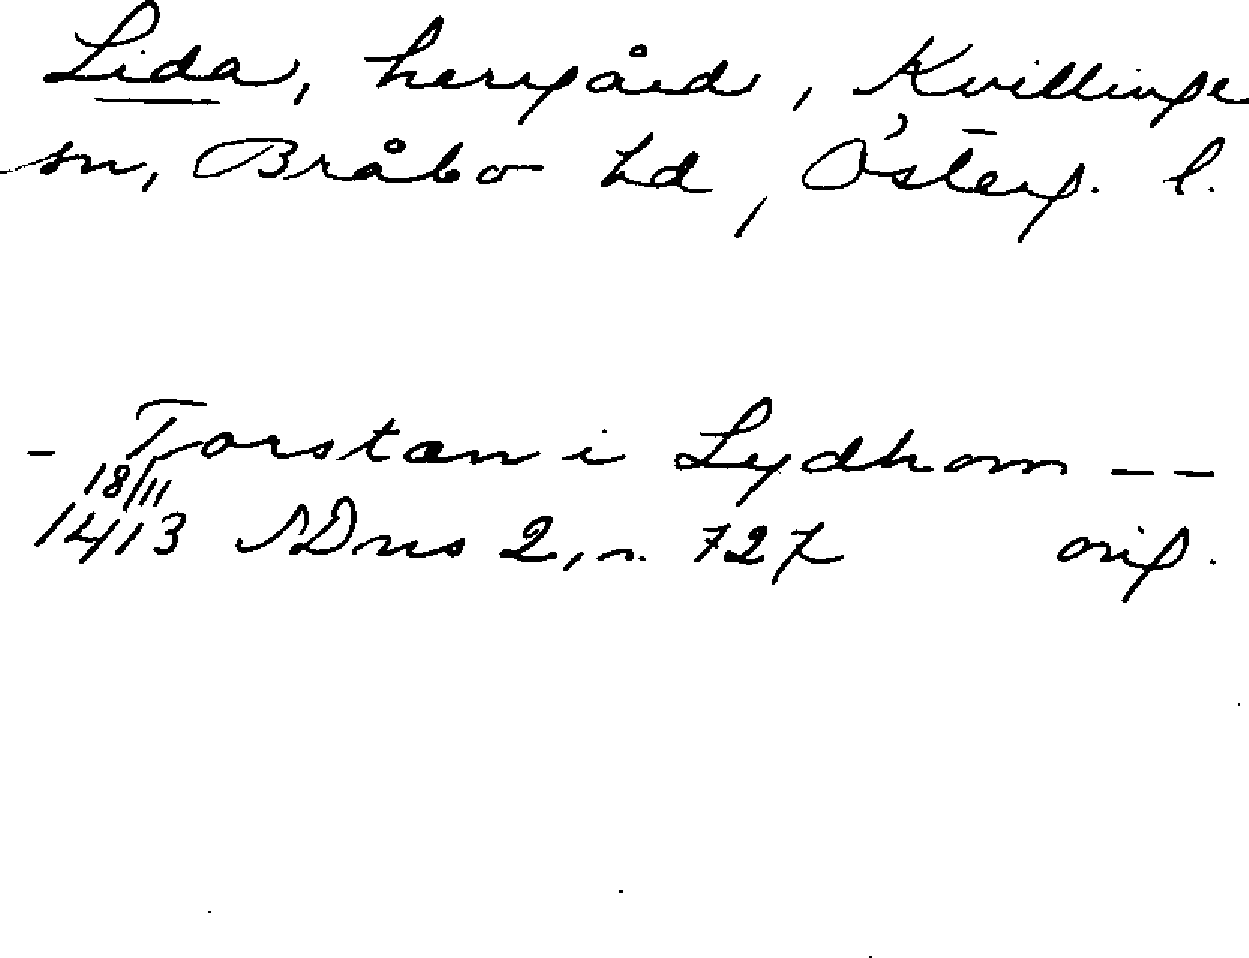 Lida, herrgård, Kvillinge
sn, Bråbo hd, Österg. l.
- Torstan i Lydhom --
18/11
1413 SDns 2, n. 727 orig.